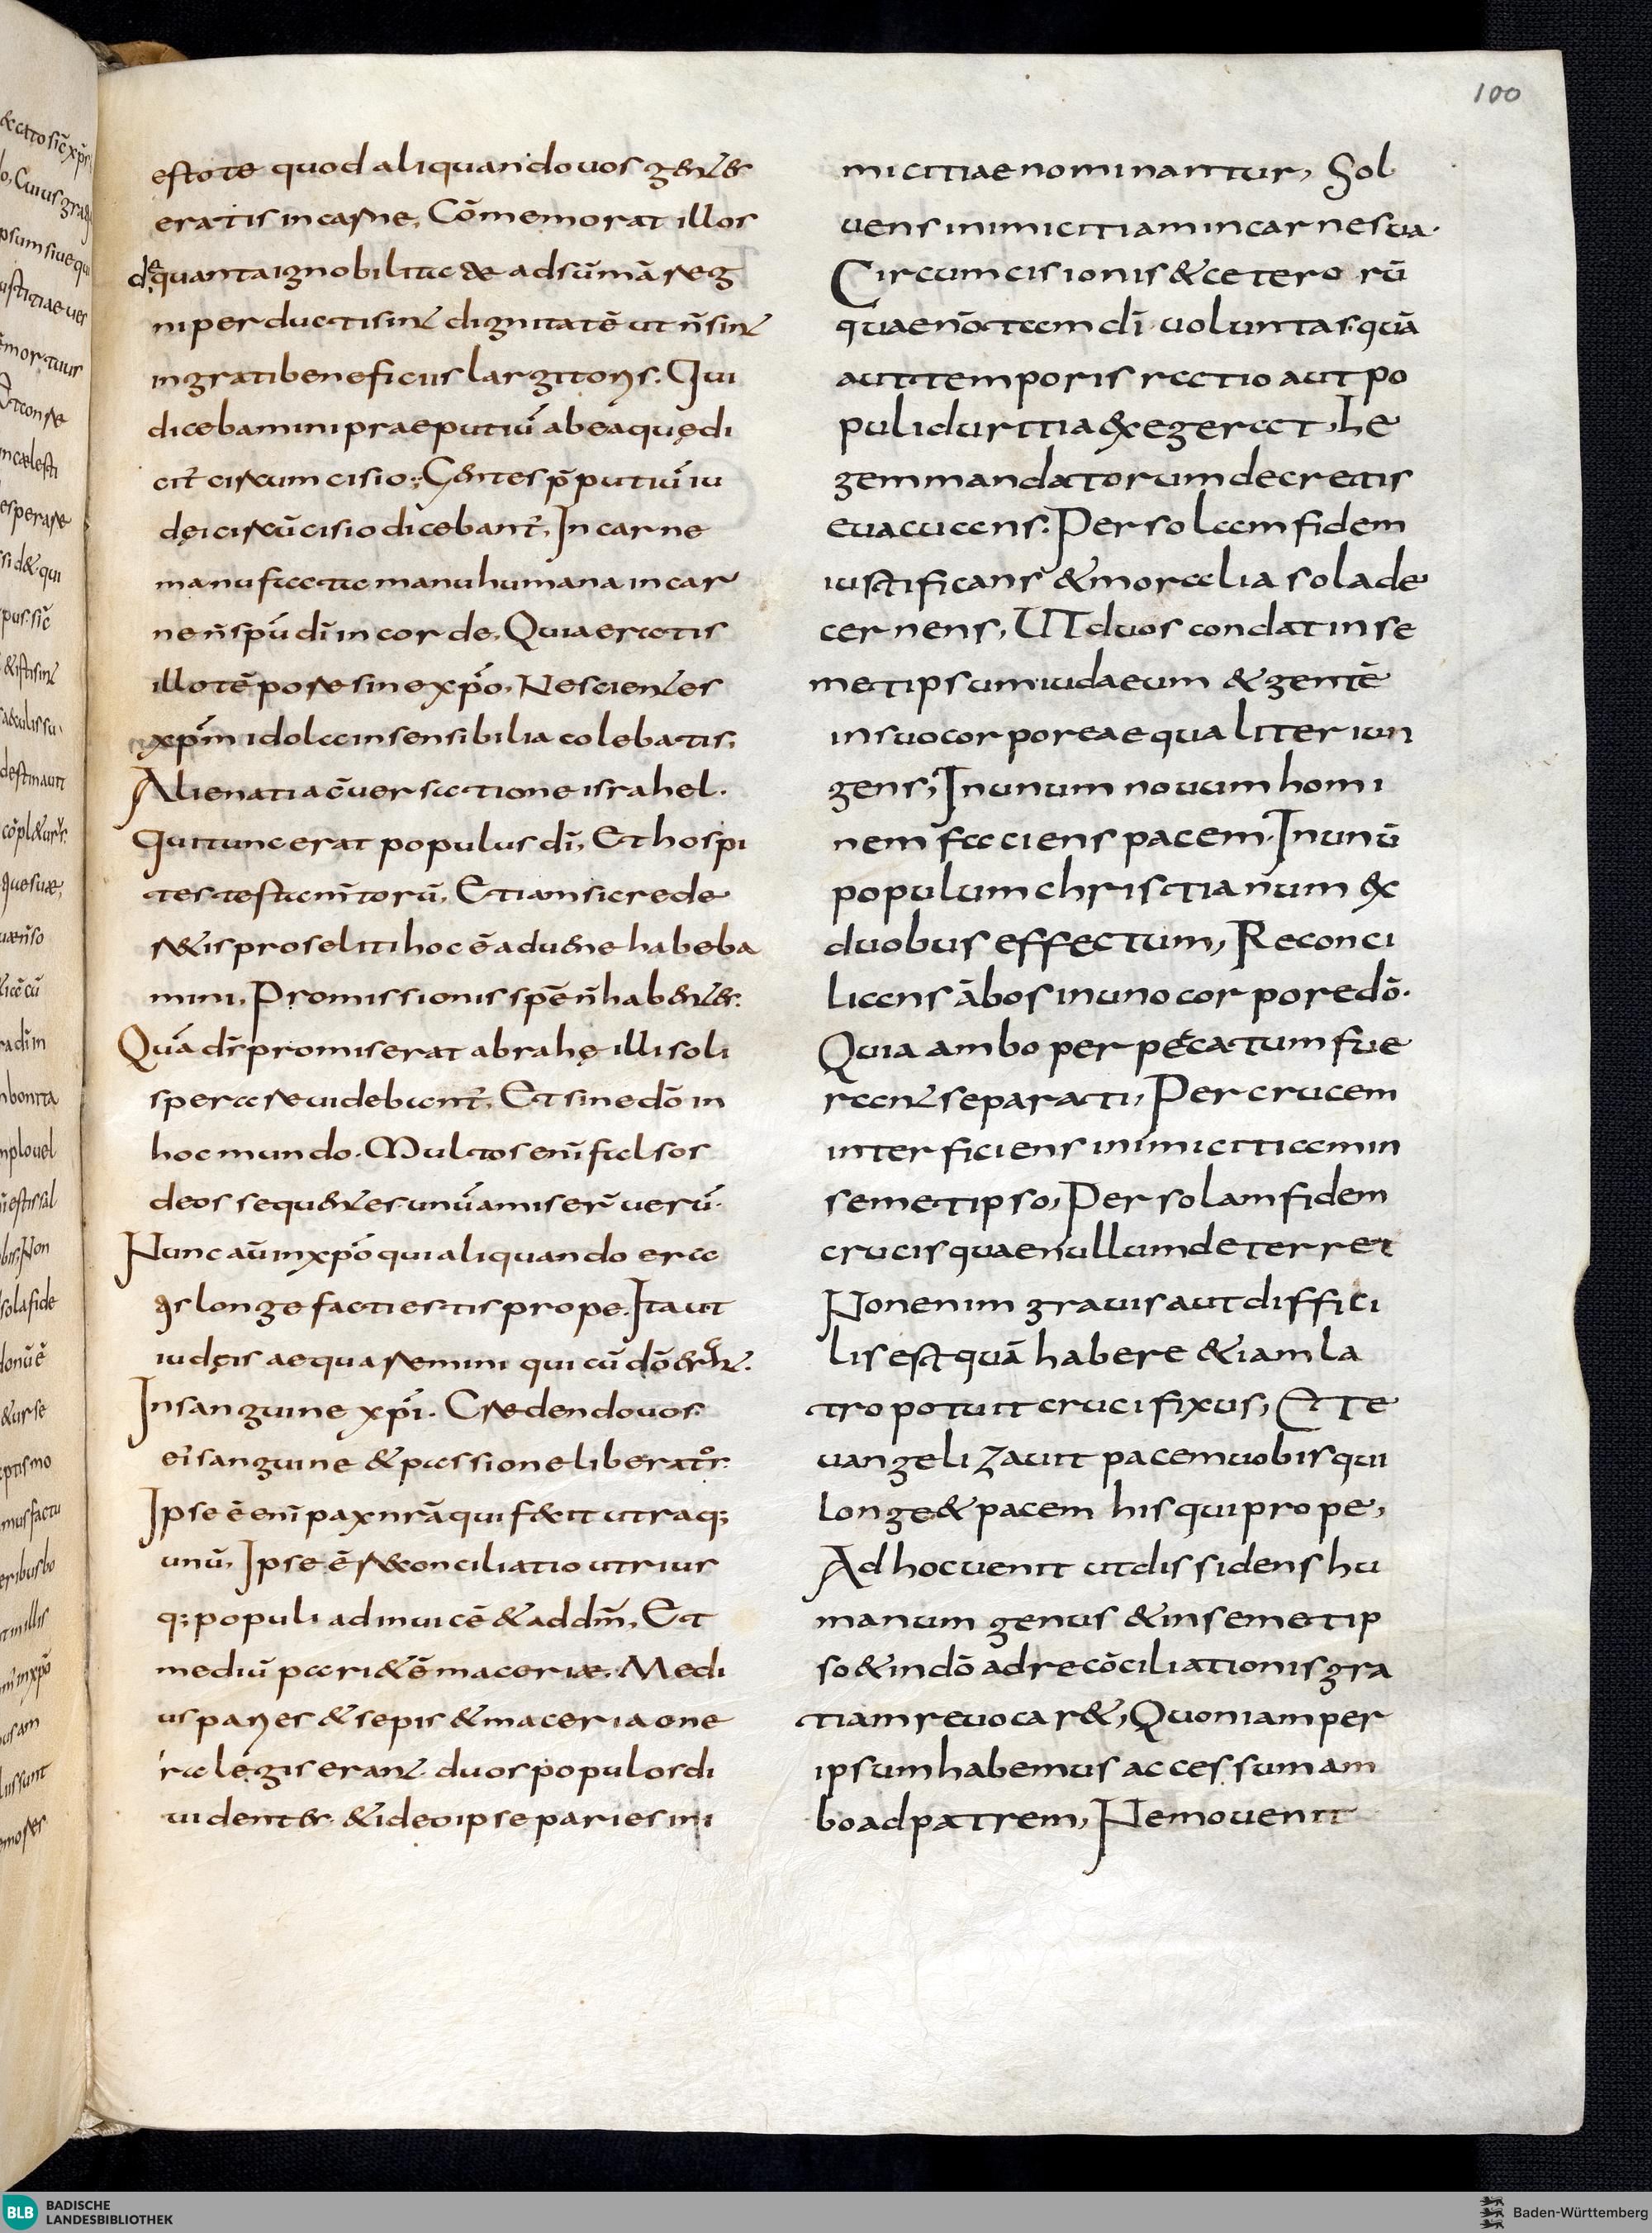 100
estote quod aliquando uos gentes
eratis in carne, Cōmemorat illos
de quanta ignobilitate ad sūmā reg
ni perducti sint dignitatē ut n̄ sint
ingrati beneficiis largitoris. Qui
dicebamini praeputiū ab ea quę di
cit̄ circumcisio; Gentes p̄putiū iu
dęi circūcisio dicebant̄, In carne
manu facta manu humana in car
ne n̄ spū dī in corde, Quia eratis
illo tēpore sine xp̄o, Nescientes
xp̄m idola insensibilia colebatis;
Alienati a c̄uersatione israhel.
Qui tunc erat populus dī, Et hospi
tes testam̄torū, Etiam si crede
retis proseliti hoc ē aduenę habeba
mini, Promissionis spē n̄ habentes.
Quā ds̄ promiserat abrahę illi soli
sperare uidebant̄, Et sine dō in
hoc mundo. Multos enī falsos
deos sequentes unū amiser̄ uerū.
Nunc aū in xp̄o qui aliquando era
tis longe facti estis prope. Ita ut
iudęis aequaremini qui cū dō erant.
In sanguine xp̄i. Credendo uos
eī sanguine & passione liberator.
Ipse ē enī pax nr̄a qui fecit utraq;
unū, Ipse ē reconciliatio utrius
q; populi ad inuicē & ad dm̄, Et
mediū parietē maceriae. Medi
us paries & sepis & maceria one
ra legis erant duos populos di
uidentes & ideo ipse paries ini
micitiae nominantur, Sol
uens inimicitiam in carne sua.
Circumcisionis & ceterorū
quae nō tam dī uoluntas quā
aut temporis ratio aut po
puli duritia exegerat, Le
gem mandatorum decretis
euacuans. Per solam fidem
iustificans & moralia sola de
cernens, UT duos condat in se
metipsum iudaeum & gentē
in suo corpore aequaliter iun
gens, In unum nouum homi
nem faciens pacem. In unū
populum christianum ex
duobus effectum, Reconci
lians ābos in uno corpore dō.
Quia ambo per peccatum fue
rant separati, Per crucem
interficiens inimicitiam in
semetipso, Per solam fidem
crucis quae nullum deterret
Non enim grauis aut diffici
lis est quā habere & iam la
tro potuit crucifixus, ET e
uangelizauit pacem uobis qui
longe & pacem his qui prope,
Ad hoc uenit ut dissidens hu
manum genus & in semetip
so & in dō ad recōciliationis gra
tiam reuocar&, Quoniam per
ipsum habemus accessum am
bo ad patrem, Nemo uenit
BLB BADISCHE
LANDESBIBLIOTHEK
Baden-Württemberg